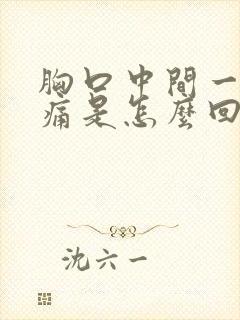 胸口中間一
痛是怎麼回
沈六一